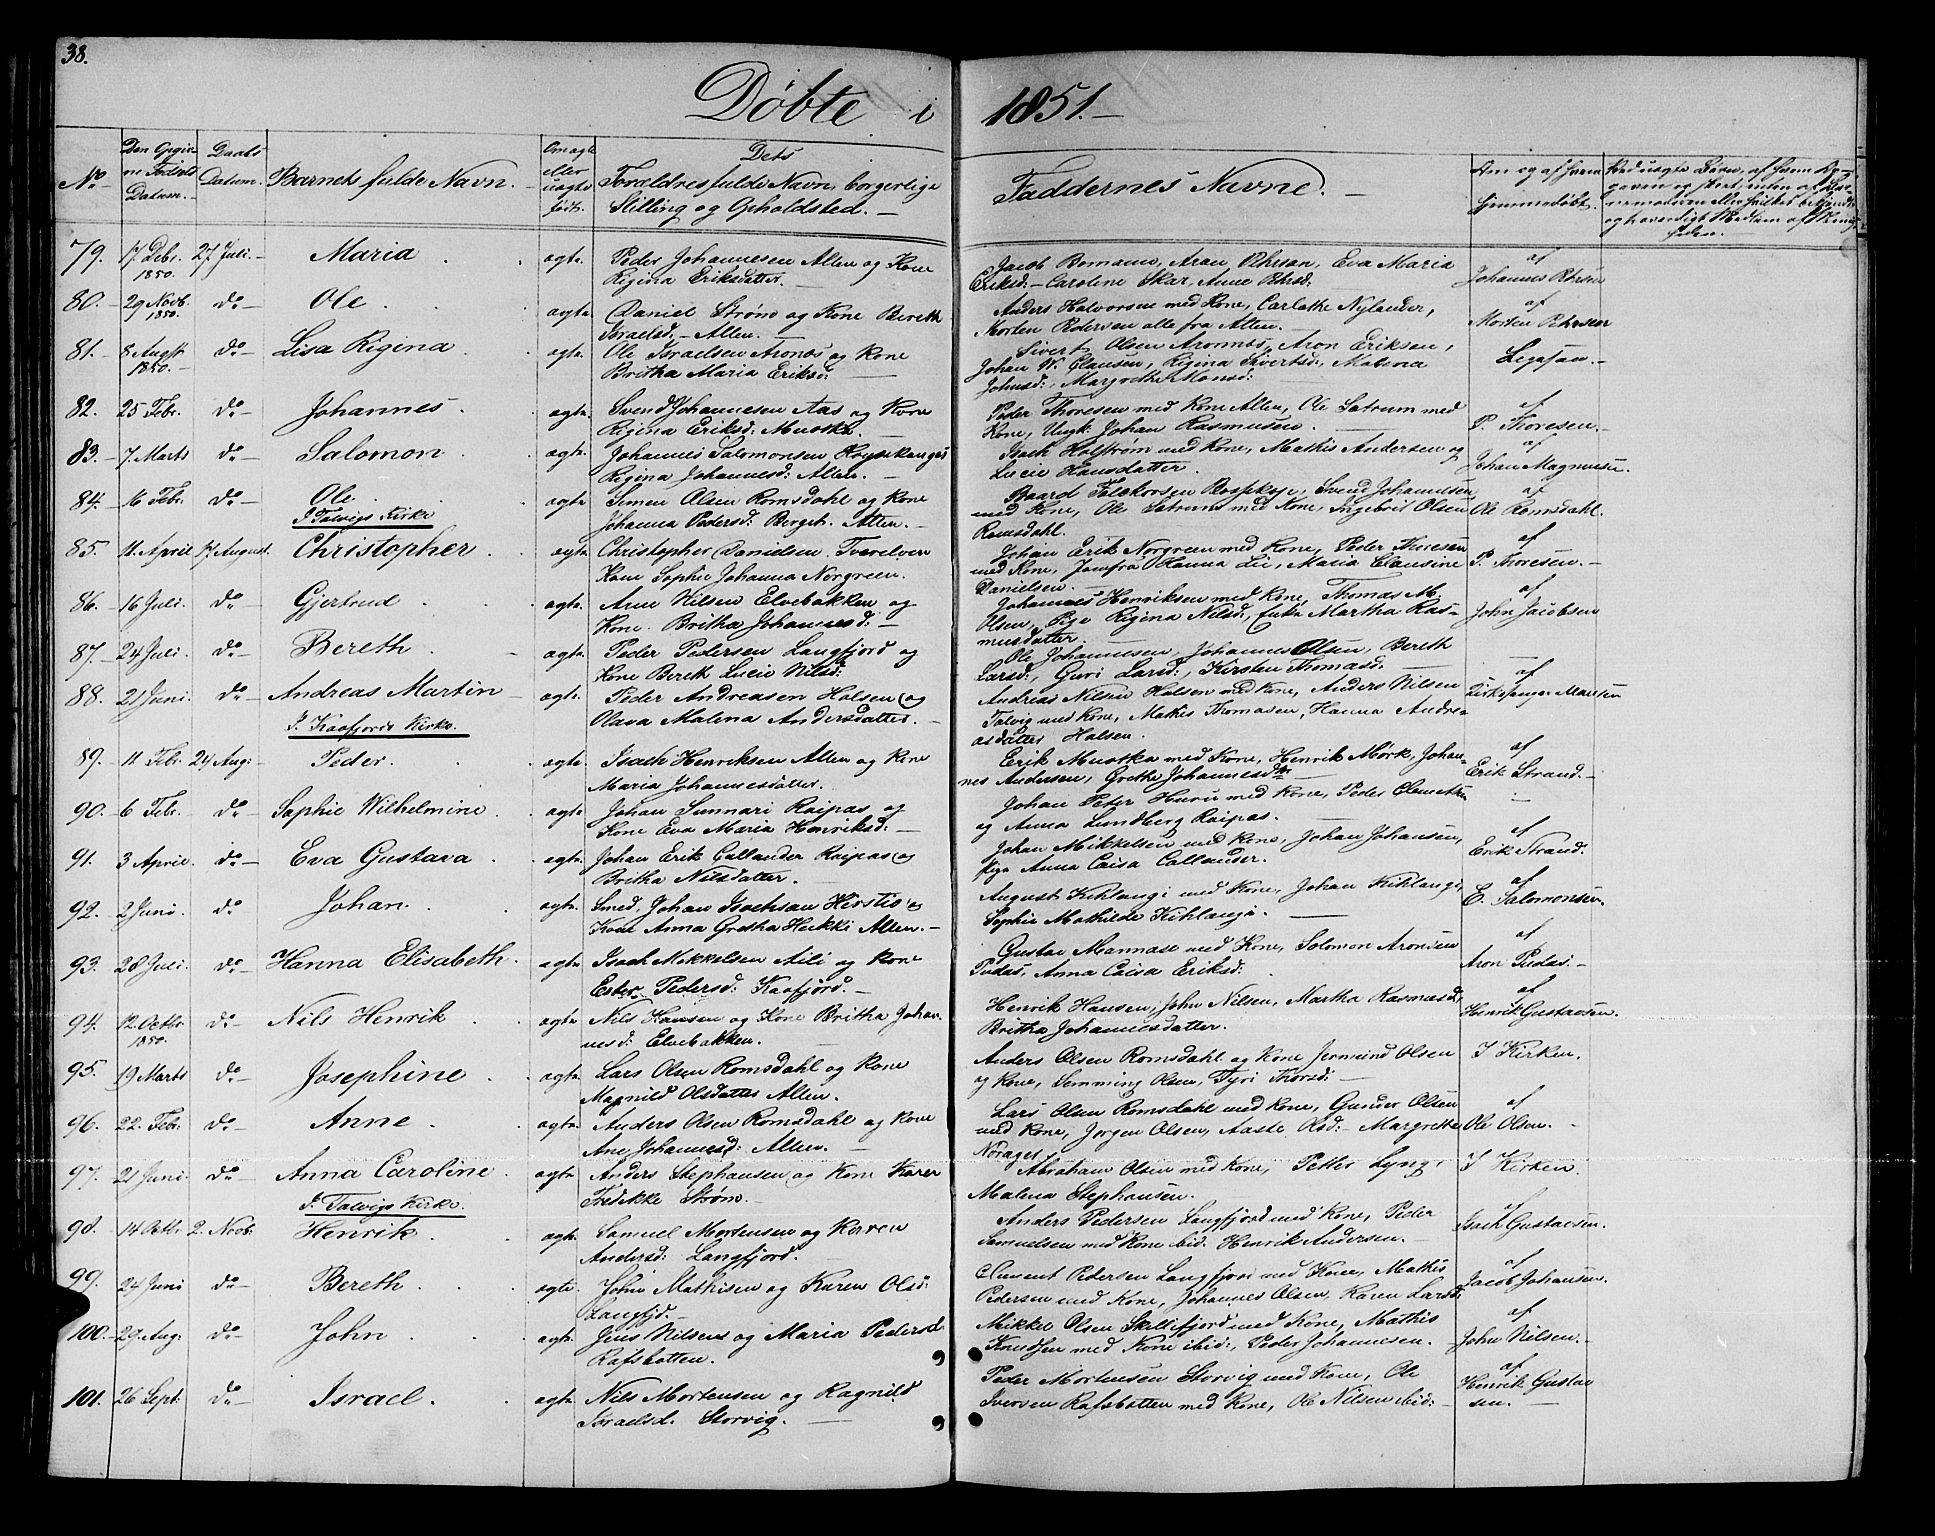 38.
Döbte i 1851.
No
Den Opgiv
ne Fødsels
Datum.
Daabs
Datum.
Barnets fulde Navn.
Om ægte
eller
uægte
født.
Dets
Forældres fulde Navn, borgerlige
Stilling og Opholdsted.
Faddernes Navne.
Om og af hvem
hjemmedöbt.
79. 17 Debr. 1850. 27 Juli. Maria. ægte
Peder Johannesen Alten og Kone
Rigina Eriksdatter.
Jacob Bomann, Aron Pehrson, Eva Maria
Eriksd: Caroline Skar, Anne Pehrsd:
af
Johannes Pehrsen
80. 29 Novb. 1850. do Ole. ægte
Daniel Strøm og Kone Bereth
Israelsd. Alten.
Anders Halvorsen med Kone, Nylander,
Morten Pedersen alle fra Alten.
af
Morten Pehrsen
81. 8 Augst 1850. do Lisa Rigina. ægte
Ole Israelsen Aronæs og Kone
Britha Maria Eriksd:
Sivert Olsen Aronnæs, Aron Eriksen,
Johan W. Clausen, Rigina Sivertsd:, Malena
Johnsd:, Margrethe Monsd:
82. 25 Febr. do Johannes. ægte
Svend Johannesen Aas og Kone
Rigina Eriksd: Muotka.
Peder Thoresen med Kone Alten, Ole Satrum med
Kone, Ungk: Johan Rasmusen.
af
P. Thoresen.
83. 7 Marts do Salomon. ægte
Johannes Salomonsen
Rigina Johannesd: Alten.
Isach Holstrøm med Kone, Mathis Andersen og
Lucie Hansdatter.
af
Johan Magnusen.
84. 16 Febr. do Ole. ægte
Simen Olsen Romsdahl og Kone
Johanna Pedersd: Berget. Alten.
Baard Bossekop, Svend Johannesen
med Kone, Ole Satrum med Kone, Ingebrit Olsen
Romsdahl.
af
Ole Romsdahl.
I Talvigs Kirke
85. 11 April 17 August. Christopher. ægte
Christopher Danielsen Tverelven
Kone Sophie Johanna Norgreen.
Johan Erik Norgreen med Kone, Peder Thoresen
med Kone, Jomfru Hanna Lie, Maria Clausine
Danielsen.
af
P. Thoresen.
86. 16 Juli. do Gjertrud. ægte
Arne Nilsen Elvebakken og
Kone. Britha Johannesd:
Johannes Henriksen med Kone, Thomas M.
Olsen, Pige Rigina Nilsd:, Enke Martha Ras-
musdatter.
af
John Jacobsen
87. 24 Juli. do Bereth. ægte
Peder Pedersen Langfjord og
Kone Bereth Lucie Nilsd:
Ole Johannesen, Johannes Olsen, Bereth
Larsd:, Guri Larsd:, Kirsten Thomasd:
88. 21 Juni. do Andreas Martin ægte
Peder Andreasen Halsen og
Olava Malena Andersdatter.
Andreas Nilsen Halsen med Kone, Anders Nilsen
Talvig med Kone, Mathis Thomasen, Hanna Andrea-
asdatter Halsen.
af
I Kaafjords Kirke.
89. 11 Febr. 24 Aug: Peder. ægte
Isach Henriksen Alten og Kone
Maria Johannesdatter.
Erik Muotka med Kone, Henrik Mörk, Johan-
nes Andersen, Grethe Johannesdtr
af
Erik Strand.
90. 6 Febr. do Sophie Wilhelmine. ægte
Johan Sunnari Raipas og
Kone Eva Maria Henriksd:
Johan Peter med Kone, Peder
og Anna Lundberg Raipas.
91. 3 April. do Eva Gustava. ægte
Johan Erik Callander Raipas og
Britha Nilsdatter.
Johan Mikkelsen med Kone, Johan Johansen,
Pige Anna Caisa Callander.
af
Erik Strand.
92. 2 Juni. do Johan. ægte
Smed. Johan Isachsan Hirstio og
Kone Anna Gretha Heikki Alten.
August Kihlangi med Kone, Johan Kihlangi,
Sophie Mathilde Kihlangi.
af
E. Salomonsen.
93. 28 Juli. do Hanna Elisabeth. ægte
Isach Mikkelsen Aili og Kone
Ester Pedersd: Kaafjord.
Gustav Mannase med Kone, Salomon Aronsen
Pudas, Anna Caisa Eriksd:
af
Aron Pudas.
94. 12. Octbr. 1850. do Nils Henrik. ægte
Nils Hansen og Kone Britha Johan-
nesd: Elvebakken.
Henrik Hansen, John Nilsen, Martha Rasmusd,
Britha Johannesdatter.
af
Henrik Gustavsen.
95. 19 Marts do Josephine. ægte
Lars Olsen Romsdahl og Kone
Magnild Olsdatter Alten.
Anders Olsen Romsdahl og Kone Jermund Olsen
og Kone, Semming Olsen, Tyri Thorsd:
I Kirken.
96. 22. Febr. do Anne. ægte
Anders Olsen Romsdahl og Kone
Ane Johannesd: Alten.
Lars Olsen Romsdahl med Kone, Gunder Olsen
med Kone, Jørgen Olsen, Aaste Olsd: Margrethe
Noraget.
af
Ole Olsen.
97. 21 Juni. do Anna Caroline. ægte
Anders Stephansen og Kone Karen
Fredikke Strøm.
Abraham Olsen med Kone, Petter Lyng,
Malena Stephansen.
I Kirken.
I Talvigs Kirke.
98. 14 Octbr 2. Novb: Henrik. ægte
Samuel Mortensen og Kerren
Andersd: Langfjord.
Anders Pedersen Langfjord med Kone, Peder
Samuelsen med Kone ibid. Henrik Andersen.
af
Isach Gustavsen.
99. 24 Juni do Bereth. ægte
John Mathisen og Karen Olsd:
Langfjd.
Clement Pedersen Langfjord med Kone, Mathis
Pedersen med Kone, Johannes Olsen, Karen Larsd:
af
Jacob Johansen.
100. 29 Aug: do John. ægte
Jens Nilsens og Maria Pedersd.
Rafsbotten.
Mikkel Olsen Skillifjord med Kone, Mathis
Knudsen med Kone ibid:, Peder Johannesen.
af
John Nilsen.
101. 26 Sept. do Israel. ægte
Nils Mortensen og Ragnild
Israelsd. Storvig.
Peder Mortensen Storvig med Kone, Ole
Iversen Rafsbotten med Kone, Ole Nilsen ibid:
af
Henrik Gustav
sen.